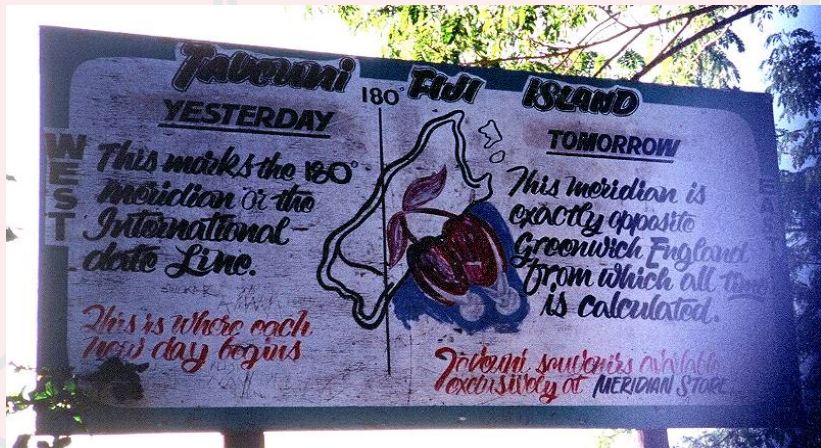 Taveuni FIJI ISLAND
180°
WEST
YESTERDAY
This marks the 180°
meridian or the
International
date Line.
This is where each
new day begins
EAST
TOMORROW
This meridian is
exactly opposite
Greenwich England
from which all time
is calculated.
Taveuni souvenirs available
exclusively at MERIDIAN STORE